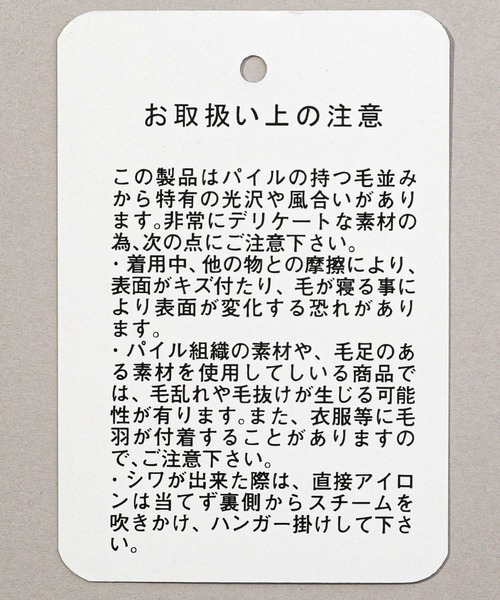 お取扱い上の注意
この製品はパイルの持つ毛並み
から特有の光沢や風合いがあり
ます。非常にデリケートな素材の
為、次の点にご注意下さい。
・着用中、他の物との摩擦により、
表面がキズ付たり、毛が寝る事に
より表面が変化する恐れがあり
ます。
・パイル組織の素材や、毛足のあ
る素材を使用してしいる商品で
は、毛乱れや毛抜けが生じる可能
性が有ります。また、衣服等に毛
羽が付着することがありますの
で、ご注意下さい。
・シワが出来た際は、直接アイロ
ンは当てず裏側からスチームを
吹きかけ、ハンガー掛けして下さ
い。